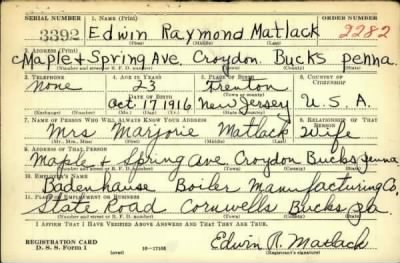 SERIAL NUMBER 1. NAME (Print) ORDER NUMBER
3392 Edwin Raymond Matlack 2282
(First) (Middle) (Last)
2. ADDRESS (Print)
Maple & Spring Ave. Croydon. Bucks penna.
(Number and street or R. F. D. number) (Town) (County) (State)
3. TELEPHONE 4. AGE IN YEARS 5. PLACE OF BIRTH 6. COUNTRY OF CITIZENSHIP
None 23 Trenton
DATE OF BIRTH (Town or county)
Oct. 17 1916 New Jersey U.S.A.
(Exchange) (Number) (Mo.) (Day) (Yr.) (State or country)
7. NAME OF PERSON WHO WILL ALWAYS KNOW YOUR ADDRESS 8. RELATIONSHIP OF THAT PERSON
Mrs Marjorie Matlack wife
(Mr., Mrs., Miss) (First) (Middle) (Last)
9. ADDRESS OF THAT PERSON
Maple & Spring ave Croydon Bucks penna
(Number and street or R. F. D. number) (Town) (County) (State)
10. EMPLOYER'S NAME
Badenhause Boiler Manufacturing Co,
11. PLACE OF EMPLOYMENT OR BUSINESS
State Road Cornwells Bucks Pa.
(Number and street or R. F. D. number) (Town) (County) (State)
I AFFIRM THAT I HAVE VERIFIED ABOVE ANSWERS AND THAT THEY ARE TRUE.
REGISTRATION CARD
D. S. S. Form 1 (over) 16—17105 Edwin R. Matlack
(Registrant's signature)